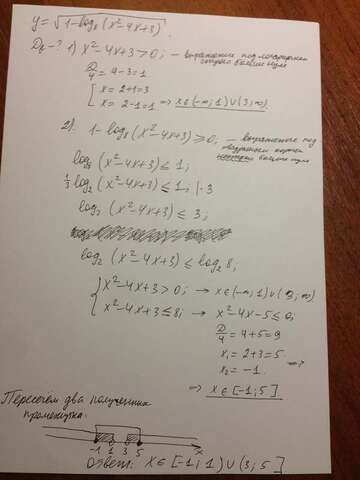 y = √(1 - log₈ (x² - 4x + 3))
Dy - ? 1) x² - 4x + 3 > 0; - выражение под логарифмом
строго больше нуля
D/4 = 4 - 3 = 1
{ x = 2 + 1 = 3
x = 2 - 1 = 1 ⇒ x ∈ (-∞; 1) ∪ (3; ∞)
2). 1 - log₈ (x² - 4x + 3) ≥ 0; - выражение под
квадратным корнем
больше нуля
log₈ (x² - 4x + 3) ≤ 1;
1/3 log₂ (x² - 4x + 3) ≤ 1, |·3
log₂ (x² - 4x + 3) ≤ 3;
log₂ (x² - 4x + 3) ≤ log₂ 8;
{ x² - 4x + 3 > 0; → x ∈ (-∞; 1) ∪ (3; ∞)
x² - 4x + 3 ≤ 8; → x² - 4x - 5 ≤ 0;
D/4 = 4 + 5 = 9
x₁ = 2 + 3 = 5
x₂ = -1
⇒ x ∈ [-1; 5]
Пересечём два полученных
промежутка:
-1 1 3 5 x
Ответ: x ∈ [-1; 1) ∪ (3; 5]